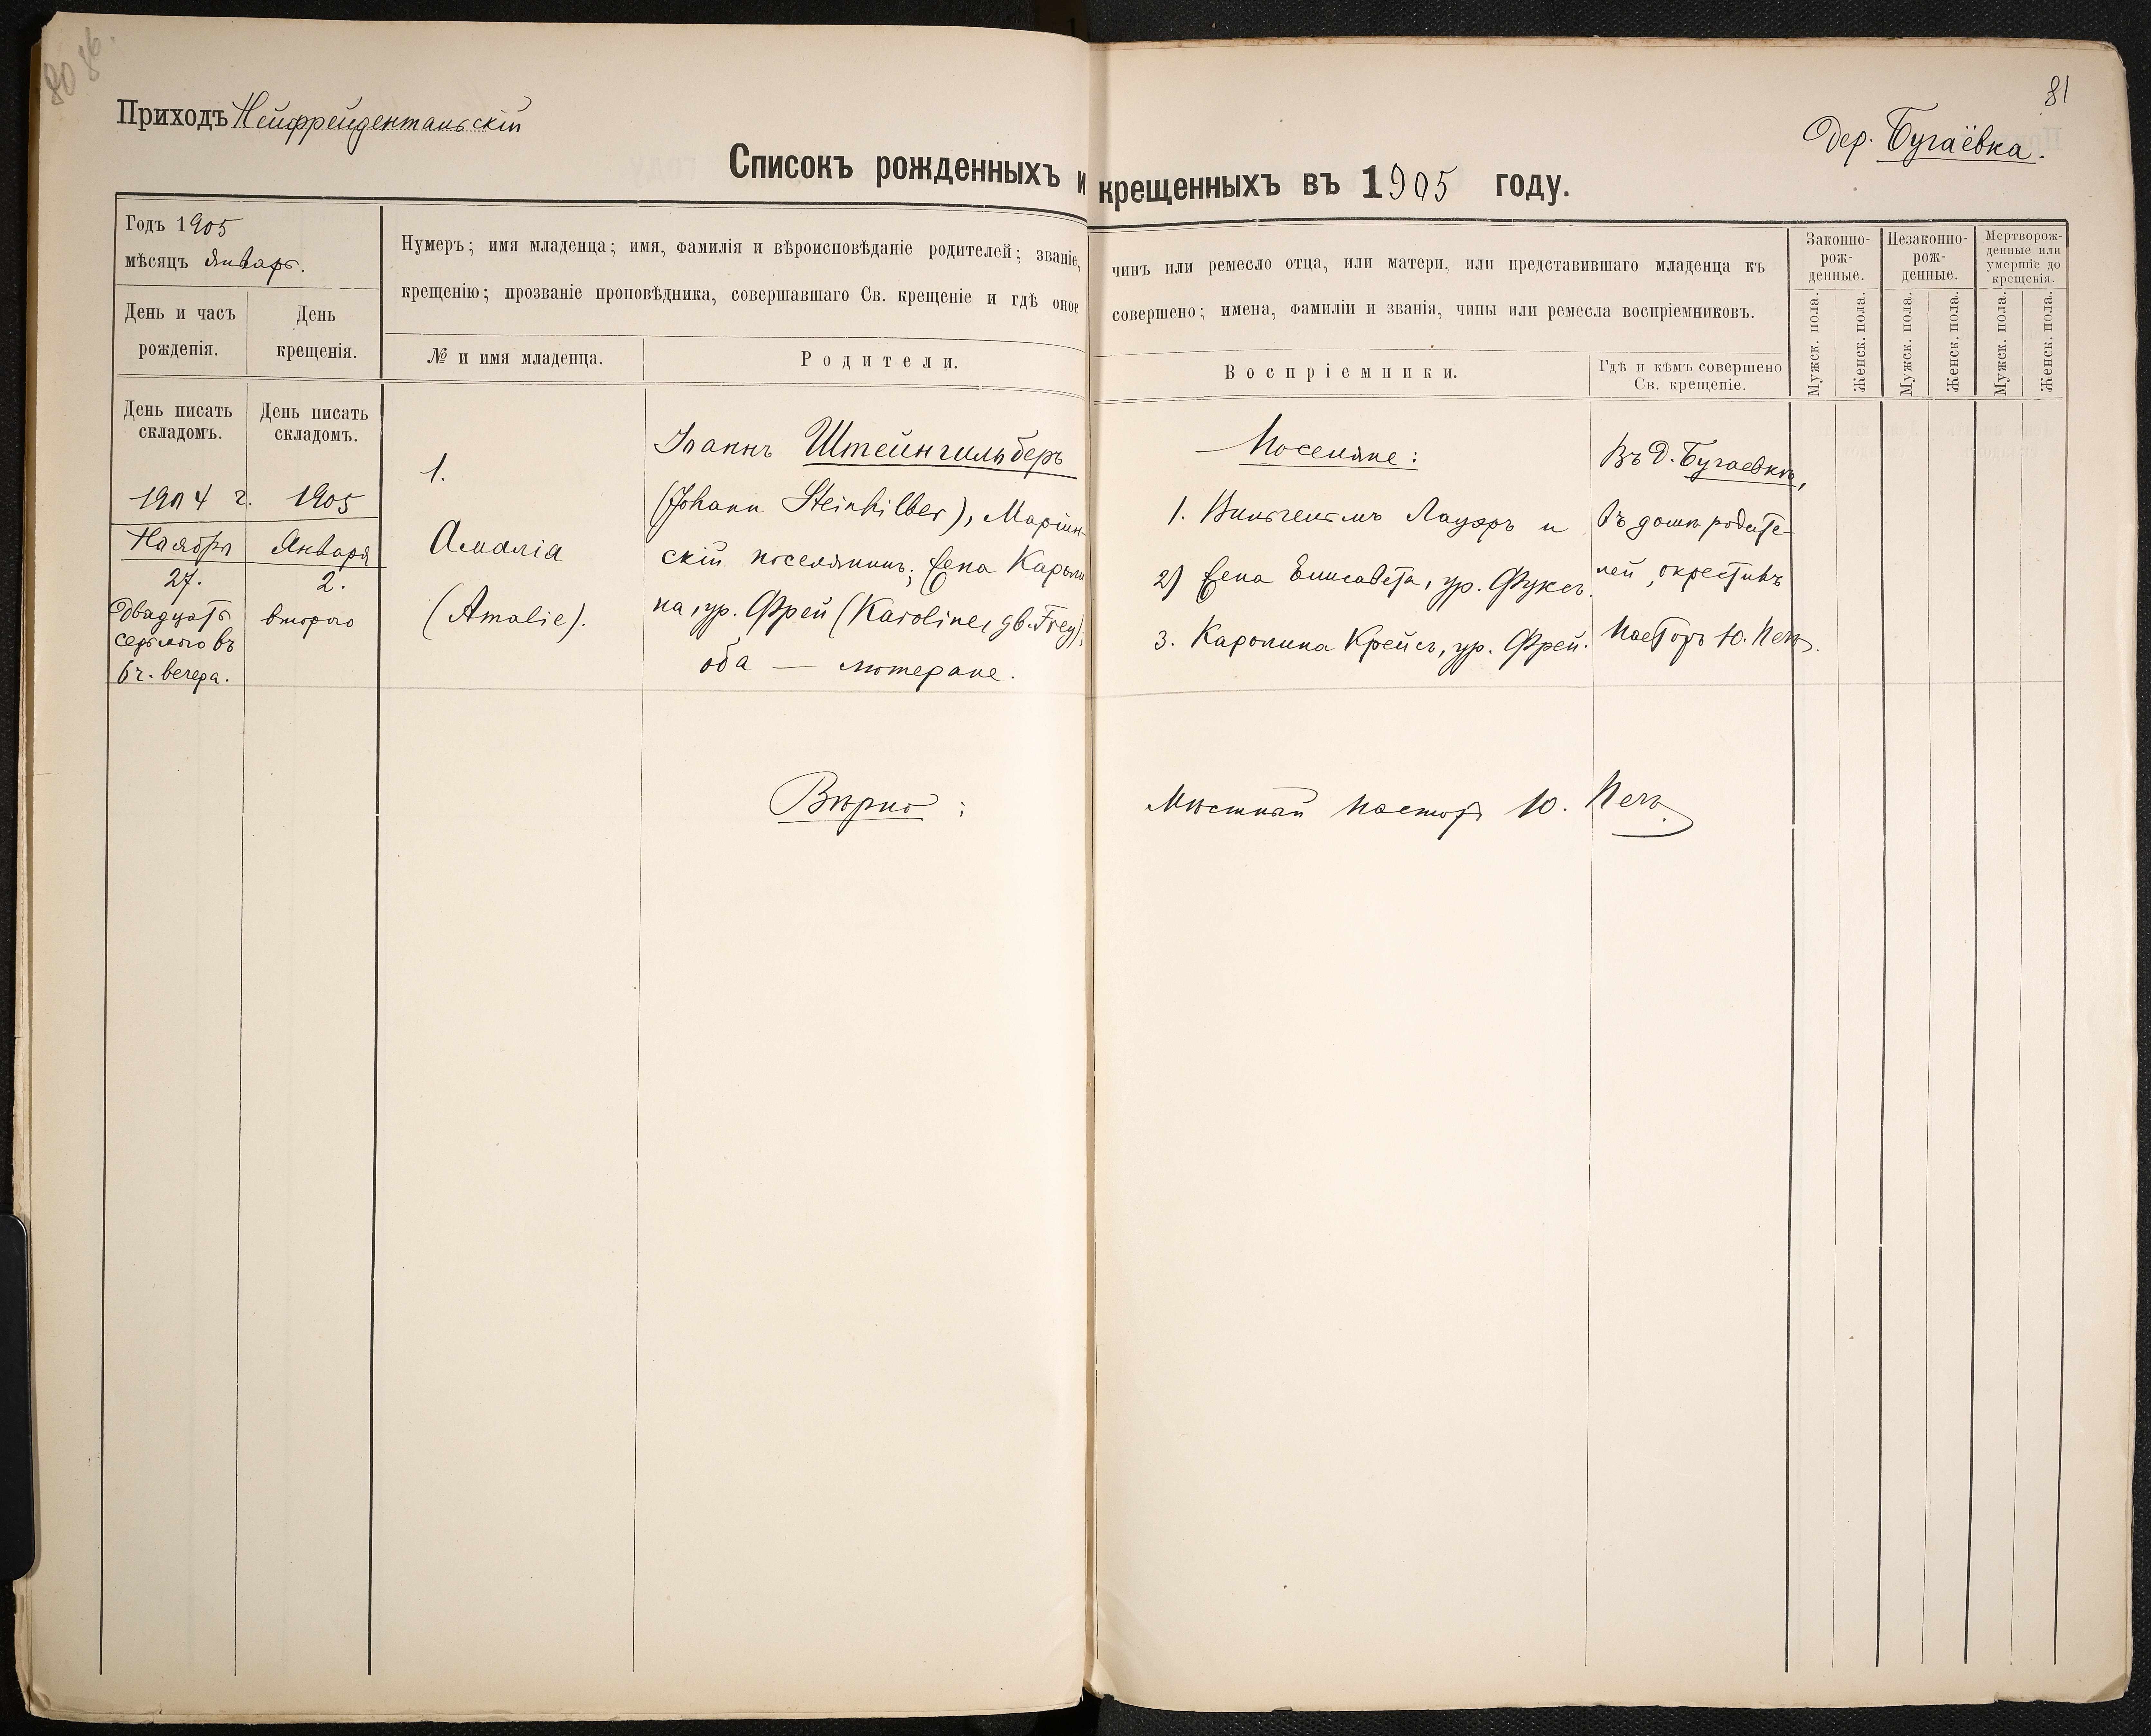 80 86.
Приходъ Нейфрейдентальскій
81
Дер. Бугаёвка.
Списокъ рожденныхъ и крещенныхъ въ 1905 году.
Годъ 1905
мѣсяцъ Январь.
День и часъ
рожденія.
День
крещенія.
Нумеръ; имя младенца; имя, фамилія и вѣроисповѣданіе родителей; званіе, чинъ или ремесло отца, или матери, или представившаго младенца къ
крещенію; прозваніе проповѣдника, совершавшаго Св. крещеніе и гдѣ оное совершено; имена, фамиліи и званія, чины или ремесла воспріемниковъ.
№ и имя младенца.
Родители.
Воспріемники.
Гдѣ и кѣмъ совершено
Св. крещеніе.
Законно-
рож-
денные.
Незаконно-
рож-
денные.
Мертворож-
денные или
умершіе до
крещенія.
Мужск. пола.
Женск. пола.
Мужск. пола.
Женск. пола.
Мужск. пола.
Женск. пола.
День писать
складомъ.
День писать
складомъ.
1904 г.
Ноября
27.
Двадцать
седьмого въ
6 ч. вечера.
1905
Января
2.
второго
1.
Амалія
(Amalie).
Іоаннъ Штейнгильберъ
(Johann Steinhilber), Маріин-
скій поселянинъ; жена Кароли
на, ур. Фрей (Karoline, gb. Frey);
оба — лютеране.
Поселяне:
1. Вильгельмъ Лауэръ и
2) жена Елисавета, ур. Фуксъ.
3. Каролина Крейсъ, ур. Фрей.
Въ д. Бугаевкѣ,
въ домѣ родите-
лей, окрестилъ
Пасторъ Ю. Печъ.
Вѣрно:
Мѣстный пасторъ Ю. Печъ.